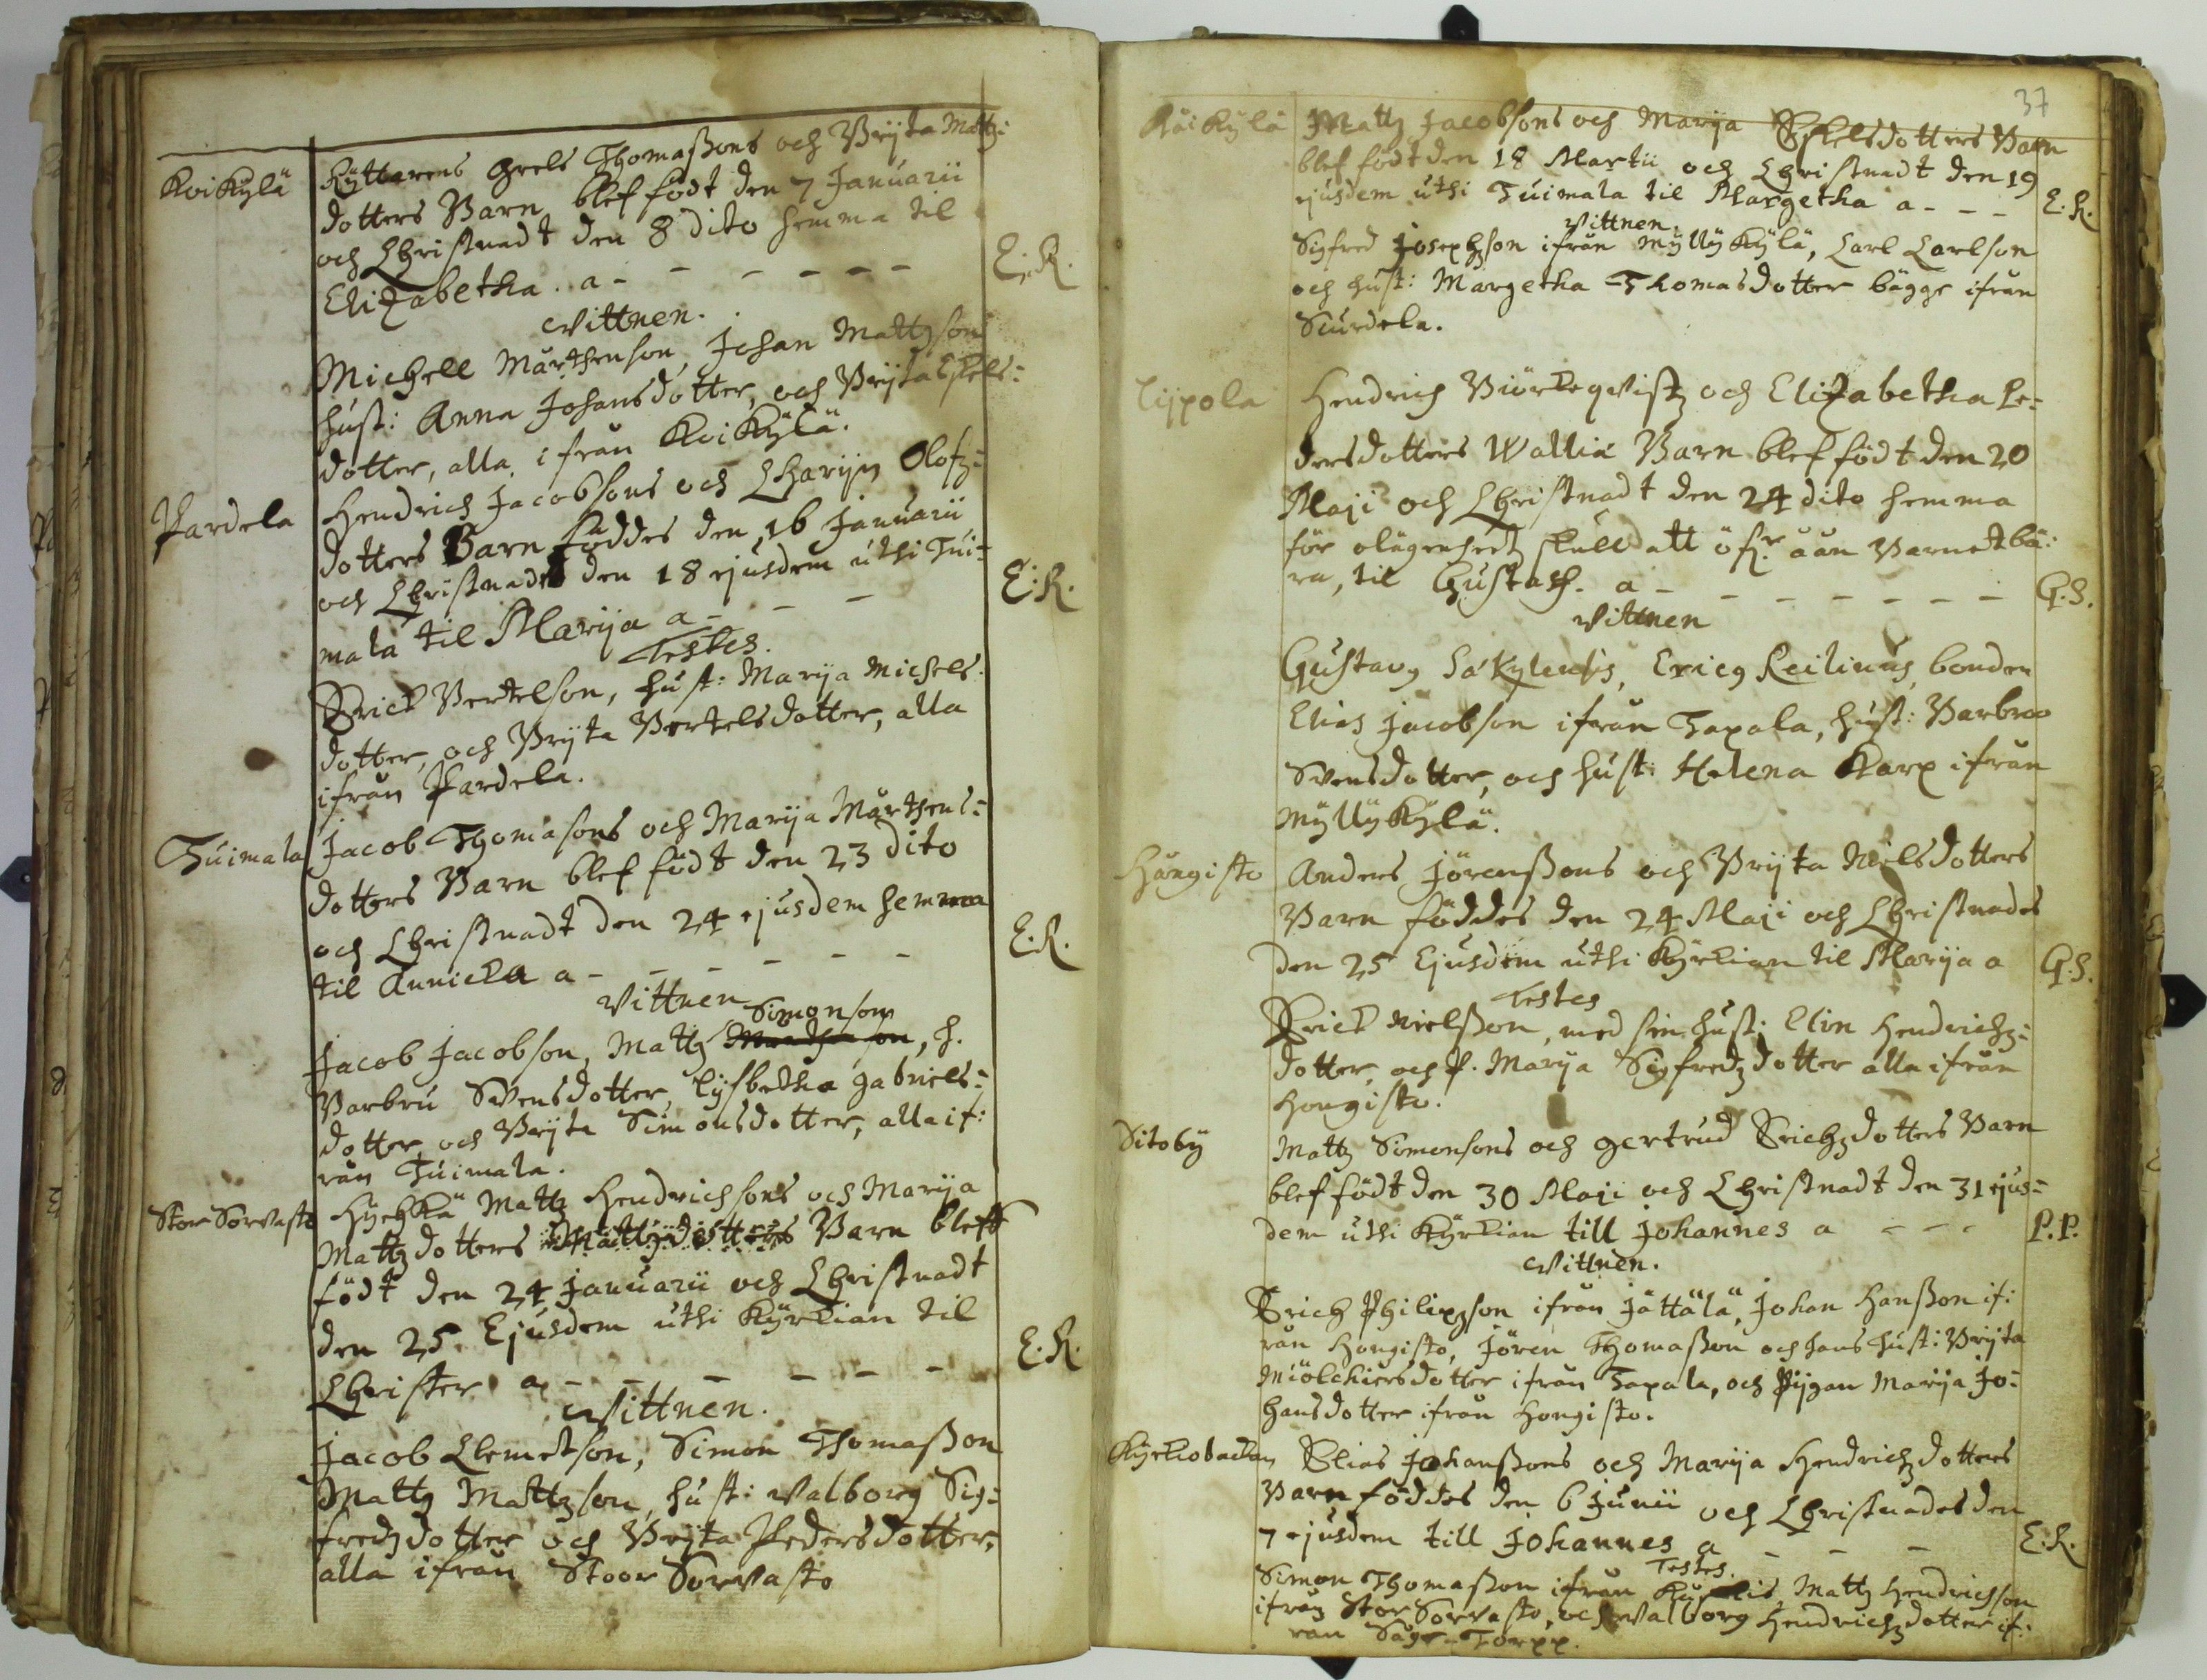 Koikylä
Ryttarens Grels Thomaßons och Brijta Mattz:
dotters Barn blef födt den 7 Januarii
och Christnadt den 8 dito hemma til
Elizabetha. a - - - - - - E. R.
Vittnen.
Michell Mårthenson, Johan Mattzson
hust: Anna Johansdotter, och Brijta Eskels:
dotter, alla ifrån Koikylä.
Pardela
Hendrich Jacobsons och Charijn Olofz:
dotters Barn föddes den 16 Januarii
och Christnades den 18 ejusdem uthi Tui:
mala til Marija a - - - E. R.
Testes.
Erick Bertelson, hust: Marija Michels:
dotter, och Brijta Bertelsdotter, alla
ifrån Pardela.
Tuimala
Jacob Thomasons och Marija Mårthens:
dotters Barn blef födt den 23 dito
och Christnadt den 24 ejusdem hemma
til Annicka a - - - - - - E. R.
Vittnen
Simonson
Jacob Jacobson, Mattz, h.
Barbru Svensdotter, Lijsbetha Gabriels:
dotter, och Brijta Simonsdotter, alla if:
rån Tuimala.
Stor Sorvasto
Hyehkä Mattz Hendrichsons och Marija
Mattzdotters Mattzdotters Barn bleff
födt den 24 Januarii och Christnadt
den 25 Ejusdem uthi Kyrkian til
Christer a - - - - - - E. R.
Vittnen.
Jacob Clemetson, Simon Thomaßon
Mattz Mattzson, hust: Valborg Sig:
fredzdotter och Brijta Pedersdotter,
alla ifrån Stoor Sorvasto
37
Koikylä
Mattz Jacobsons och Marija Eskelsdotters Barn
blef födt den 18 Martii och Christnadt den 19
ejusdem uthi Tuimala til Margetha a - - - E. R.
Vittnen
Sigfred Josephzson ifrån Myllykylä, Carl Carlson
och hust: Margetha Thomasdotter bägge ifrån
Suurdela.
Lijpola
Hendrich Biörkeqvistz och Elizabetha Pe:
dersdotters Wallia Barn blef födt den 20
Maji och Christnadt den 24 dito hemma
för olägenhetz skull att öfr åån Barnet bä:
ra, til Gustaf. a - - - - - - - G. S.
Vittnen
Gustavg Säkylensis, Ericg Keilinus, bonden
Elias Jacobson ifrån Tapala, hust: Barbroo
Svensdotter, och hust: Helena Karp ifrån
Myllykylä.
Hångisto
Anders Jörenßons och Brijta Nielsdotters
Barn föddes den 24 Maji och Christnades
den 25 Ejusdem uthi Kyrkian til Marija a G. S.
Testes
Erick Nielßon, med sin hust: Elin Hendrichz:
dotter, och p. Marija Sigfredzdotter alla ifrån
Hongisto.
Sitoby
Mattz Simonsons och Gertrud Erichzdotters Barn
blef födt den 30 Maji och Christnadt den 31 ejus:
dem uthi Kyrkian till Johannes a - - - P. P.
Vittnen.
Erich Philipzson ifrån Jättälä, Johan Hanßon if:
rån Hongisto, Jören Thomaßon och hans hust: Brijta
Miölchiersdotter ifrån Tapala, och Pijgan Marija Jo:
hansdotter ifrån Hongisto.
Kyrkiobackan
Elias Johanßons och Marija Hendrichzdotters
Barn föddes den 6 Junii och Christnades den
7 ejusdem till Johannes a - - - E. R.
Testes.
Simon Thomaßon ifrån, Mattz Hendrichson
ifrån Stor Sorvasto, och Valborg Hendrichzdotter if:
rån Såge-Torpp.